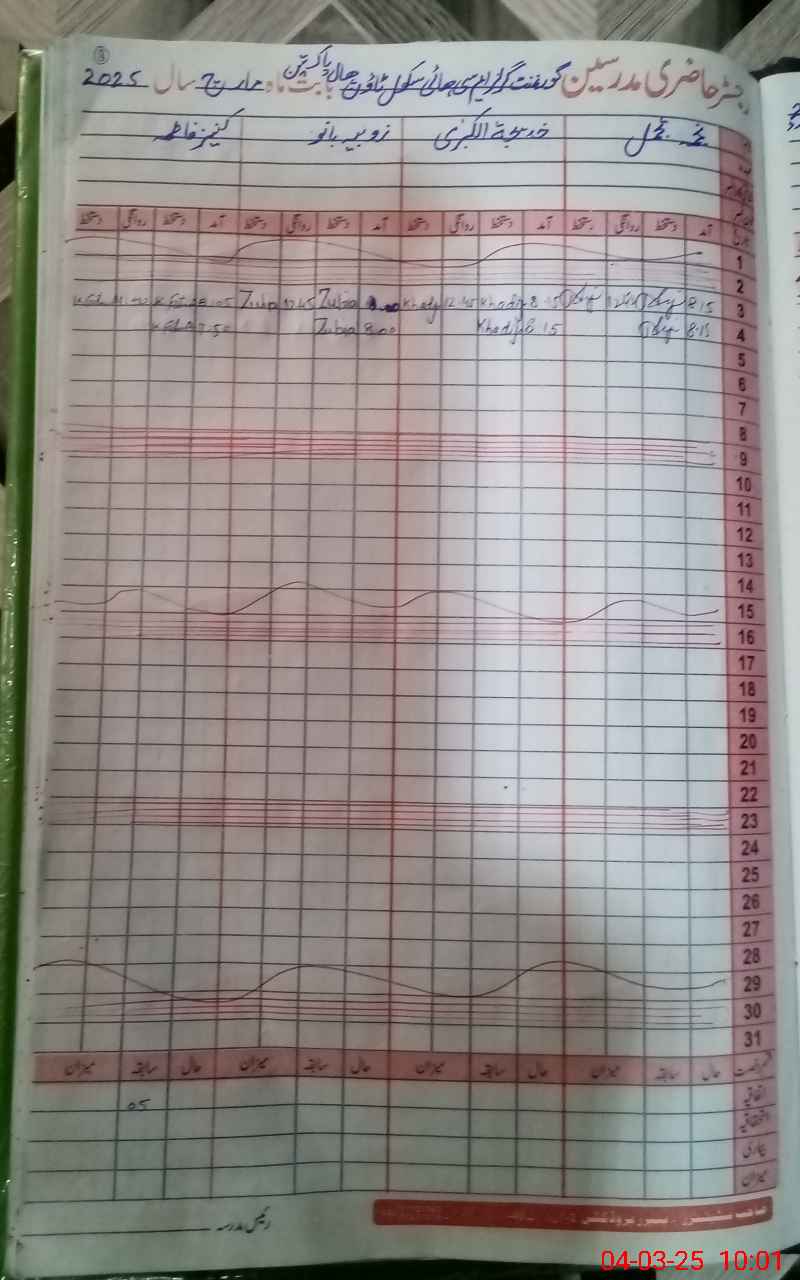 رجسٹر حاضری مدرسین گورنمنٹ گرلز ایم سی ہائی سکول ٹاؤن ہال پاکپتن بابت ماہ مارچ سال 2025
نجمہ خدیجۃ الکبرٰی زوبیہ بانو کنیز فاطمہ
آمد دستخط روانگی دستخط آمد دستخط روانگی دستخط آمد دستخط روانگی دستخط آمد دستخط روانگی دستخط
1
2
3 8:15 8:15 Khadij 12:45 Khadij Zubia 12:45 Zubia 8:05
4 8:15 8:15 Khadij 8:00 Zubia 7:50
5
6
7
8
9
10
11
12
13
14
15
16
17
18
19
20
21
22
23
24
25
26
27
28
29
30
31
قسم رخصت حال سابقہ میزان حال سابقہ میزان حال سابقہ میزان حال سابقہ میزان
اتفاقیہ 05
بیماری
میزان
رئیس مدرسہ
04-03-25 10:01